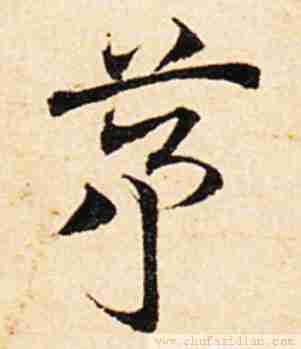 茅
www.chufazidian.com